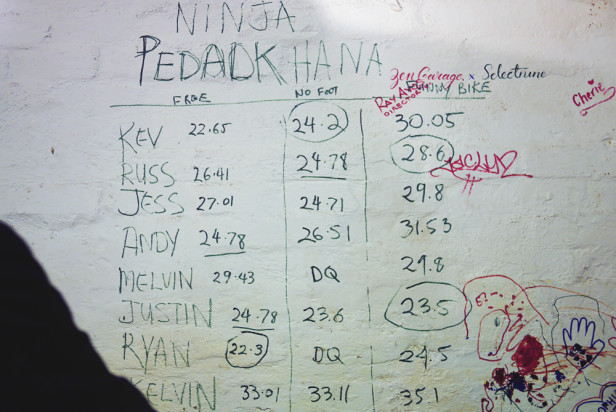 NINJA
PEDADKHANA
Zen Garage x Selectrune
FREE NO FOOT EBONY BIKE
DIRECTOR
Cherie
KEV 22.65 24.2 30.05
RUSS 26.41 24.78 28.6
JESS 27.01 24.71 29.8
ANDY 24.78 26.51 31.53
MELVIN 29.43 DQ 29.8
JUSTIN 24.78 23.6 23.5
RYAN 22.3 DQ 24.5
KELVIN 33.01 33.11 35.1